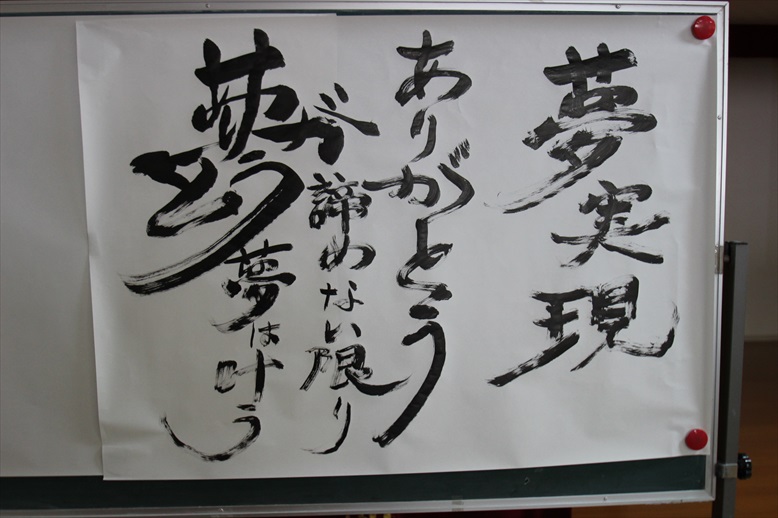 夢実現
ありがとう
諦めない限り
ありがとう
夢は叶う